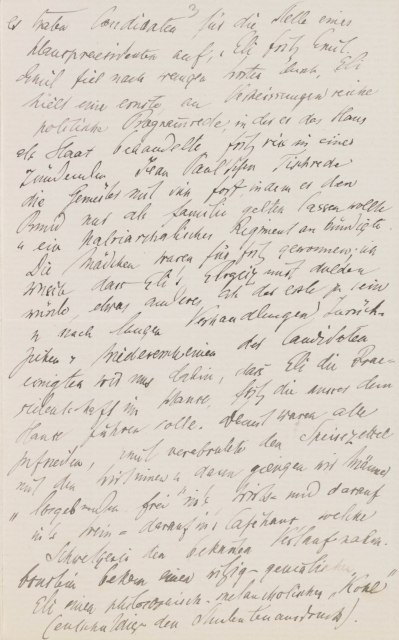 es traten Candidaten für die Stelle eines
Hauspraesidenten auf, Eli Fritz Emil.
Emil fiel nach wenigen Worten durch, Eli
hielt eine ernste, an Verheissungen reiche
politische Programmrede, in der er das Haus
als Staat behandelte, Fritz riss in einer
zündenden Jean Paul'schen Tischrede
die Gemüther mit sich fort indem er den
Bund nur als Familie gelten lassen wollte
u ein patriarchalisches Regiment ankündigte.
Die Mädchen waren für Fritz gewonnen; ich
dass Eli's Ehrgeiz nicht dulden
würde, etwas anderes als der erste zu sein
u nach langen Verhandlungen, Zurück-
ziehen u Wiedererscheinen der Candidaten
einigten wir uns dahin, dass Eli die Prae-
sidentschaft im Hause, Fritz die ausser dem
Hause führen solle. Damit waren alle
zufrieden, man verabredete den Speisezettel
mit den Wirthinnen u dann gingen wir Männer
darauf
in's Wein- darauf ins Caféhaus, welche
Schwelgerei den bekannten Verlauf nahm.
bekam einen
Eli einen philosophisch-melancholischen „Kohl"
(entschuldige den Studentenausdruck).